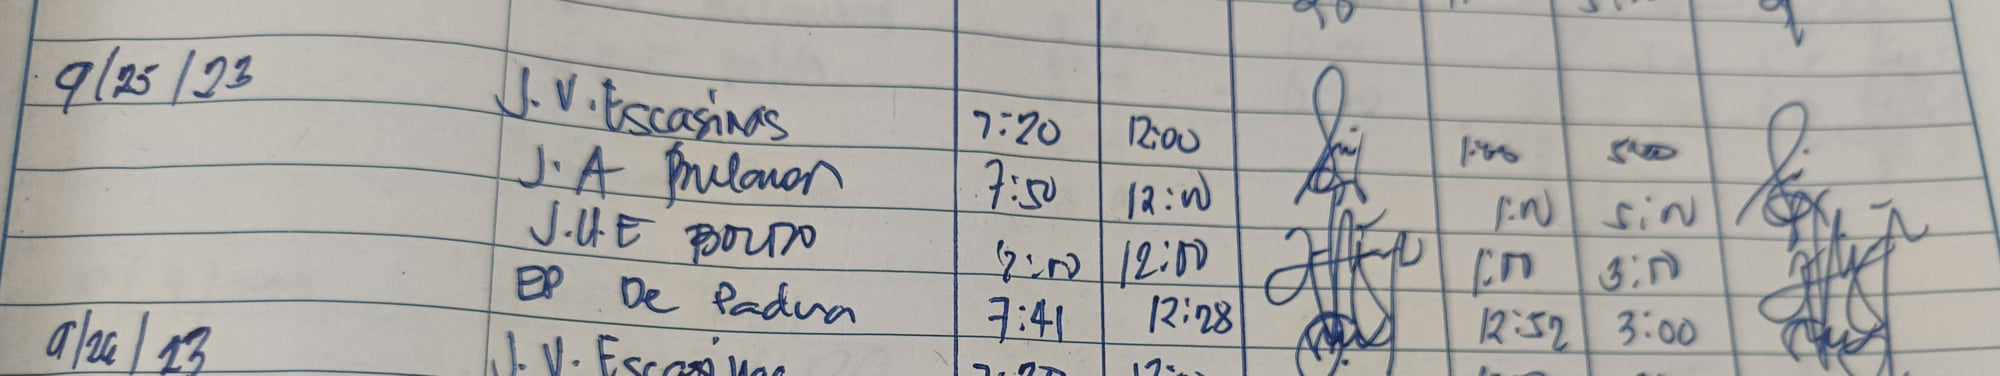 9/25/23 J.V. Escasinas 7:20 12:00 1:00 5:00
J.A Bulanon 7:50 12:00 1:00 5:00
J.U.E 8:00 12:00 1:00 3:00
EP De Padua 7:41 12:28 12:52 3:00
9/26/23 J.V. Escasinas 7:20 12:00